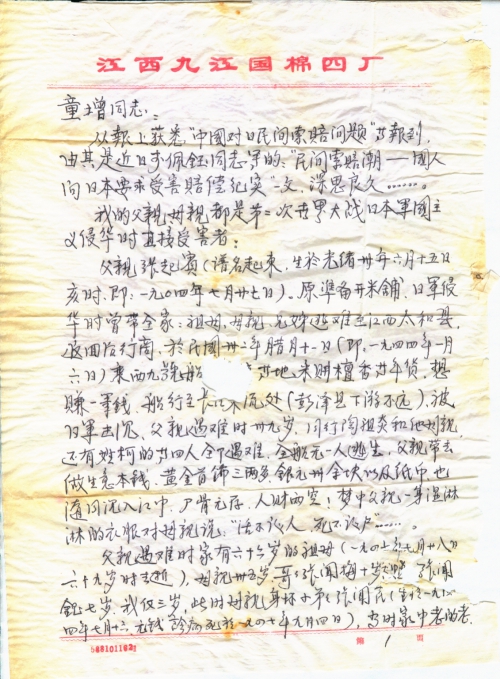 江西九江国棉四厂
童增同志:
从報上获悉“中國对日民间索賠问题”的報到,
尤其是近日李佩鈺同志写的:“民间索賠潮——國人
向日本要求受害賠偿纪实”一文,深思良久……。
我的父親母親都是第二次世界大战日本軍國主
义侵华时直接受害者:
父親張起賓(谱名起東,生於光緒卅年六月十五日
亥时,即:一九〇四年七月廿七日)。原準备开米舖,日軍侵
华时曾带全家:祖母、母親、兄姊逃难至江西太和县,
後
行商,於民國卅二年腊月十一日(即:一九四四年一月
六日)乘
船
当地
来明檀香过年货,想
赚一筆钱,船行至長江
流处(彭泽县下游不远),被
日軍击沉,父親遇难时卅九岁,同行陶祖炎和他
还有姓柯的
四人全下遇难,全船无一人逃生,父親带去
做生意本钱:黄金首饰三两多、銀元卅余块以及纸币也
随同沉入江中,尸骨无存,人财两空!梦中父親一身湿淋
淋的衣服对母親说:“活不
人,死不
尸”……。
父親遇难时家有六十六岁的祖母(一九四七年七月十八日
六十九岁时去逝),母親卅五岁,哥哥張闻梅十岁
,張闻
鈺七岁,我仅三岁,此时母親身怀小弟張闻民(生於一九四
四年七月十六,无钱診病死於一九四七年九月四日),当时家中老的老
568101192
第 1 页